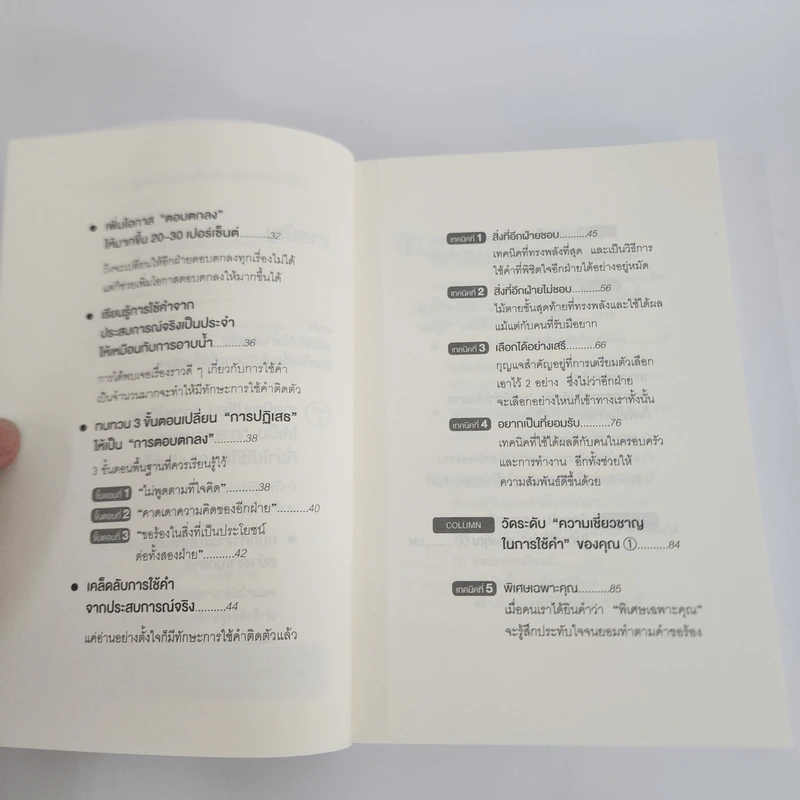 ● เพิ่มโอกาส "ตอบตกลง"
ให้มากขึ้น 20-30 เปอร์เซ็นต์..........32
ถึงจะเปลี่ยนให้อีกฝ่ายตอบตกลงทุกเรื่องไม่ได้
แต่ก็ช่วยเพิ่มโอกาสตอบตกลงให้มากขึ้นได้
● เรียนรู้การใช้คำจาก
ประสบการณ์จริงเป็นประจำ
ให้เหมือนกับการอาบน้ำ..........36
การได้พบเจอเรื่องราวดี ๆ เกี่ยวกับการใช้คำ
เป็นจำนวนมากจะทำให้มีทักษะการใช้คำติดตัว
● ทบทวน 3 ขั้นตอนเปลี่ยน "การปฏิเสธ"
ให้เป็น "การตอบตกลง"..........38
3 ขั้นตอนพื้นฐานที่ควรเรียนรู้ไว้
ขั้นตอนที่ 1 "ไม่พูดตามที่ใจคิด"..........38
ขั้นตอนที่ 2 "คาดเดาความคิดของอีกฝ่าย"..........40
ขั้นตอนที่ 3 "ขอร้องในสิ่งที่เป็นประโยชน์
ต่อทั้งสองฝ่าย"..........42
● เคล็ดลับการใช้คำ
จากประสบการณ์จริง..........44
แค่อ่านอย่างตั้งใจก็มีทักษะการใช้คำติดตัวแล้ว
เทคนิคที่ 1 สิ่งที่อีกฝ่ายชอบ..........45
เทคนิคที่ทรงพลังที่สุด และเป็นวิธีการ
ใช้คำที่พิชิตใจอีกฝ่ายได้อย่างอยู่หมัด
เทคนิคที่ 2 สิ่งที่อีกฝ่ายไม่ชอบ..........56
ไม้ตายขั้นสุดท้ายที่ทรงพลังและใช้ได้ผล
แม้แต่กับคนที่รับมือยาก
เทคนิคที่ 3 เลือกได้อย่างเสรี..........66
กุญแจสำคัญอยู่ที่การเตรียมตัวเลือก
เอาไว้ 2 อย่าง ซึ่งไม่ว่าอีกฝ่าย
จะเลือกอย่างไหนก็เข้าทางเราทั้งนั้น
เทคนิคที่ 4 อยากเป็นที่ยอมรับ..........76
เทคนิคที่ใช้ได้ผลดีกับคนในครอบครัว
และการทำงาน อีกทั้งช่วยให้
ความสัมพันธ์ดีขึ้นด้วย
COLUMN วัดระดับ "ความเชี่ยวชาญ
ในการใช้คำ" ของคุณ ①..........84
เทคนิคที่ 5 พิเศษเฉพาะคุณ..........85
เมื่อคนเราได้ยินคำว่า "พิเศษเฉพาะคุณ"
จะรู้สึกประทับใจจนยอมทำตามคำขอร้อง